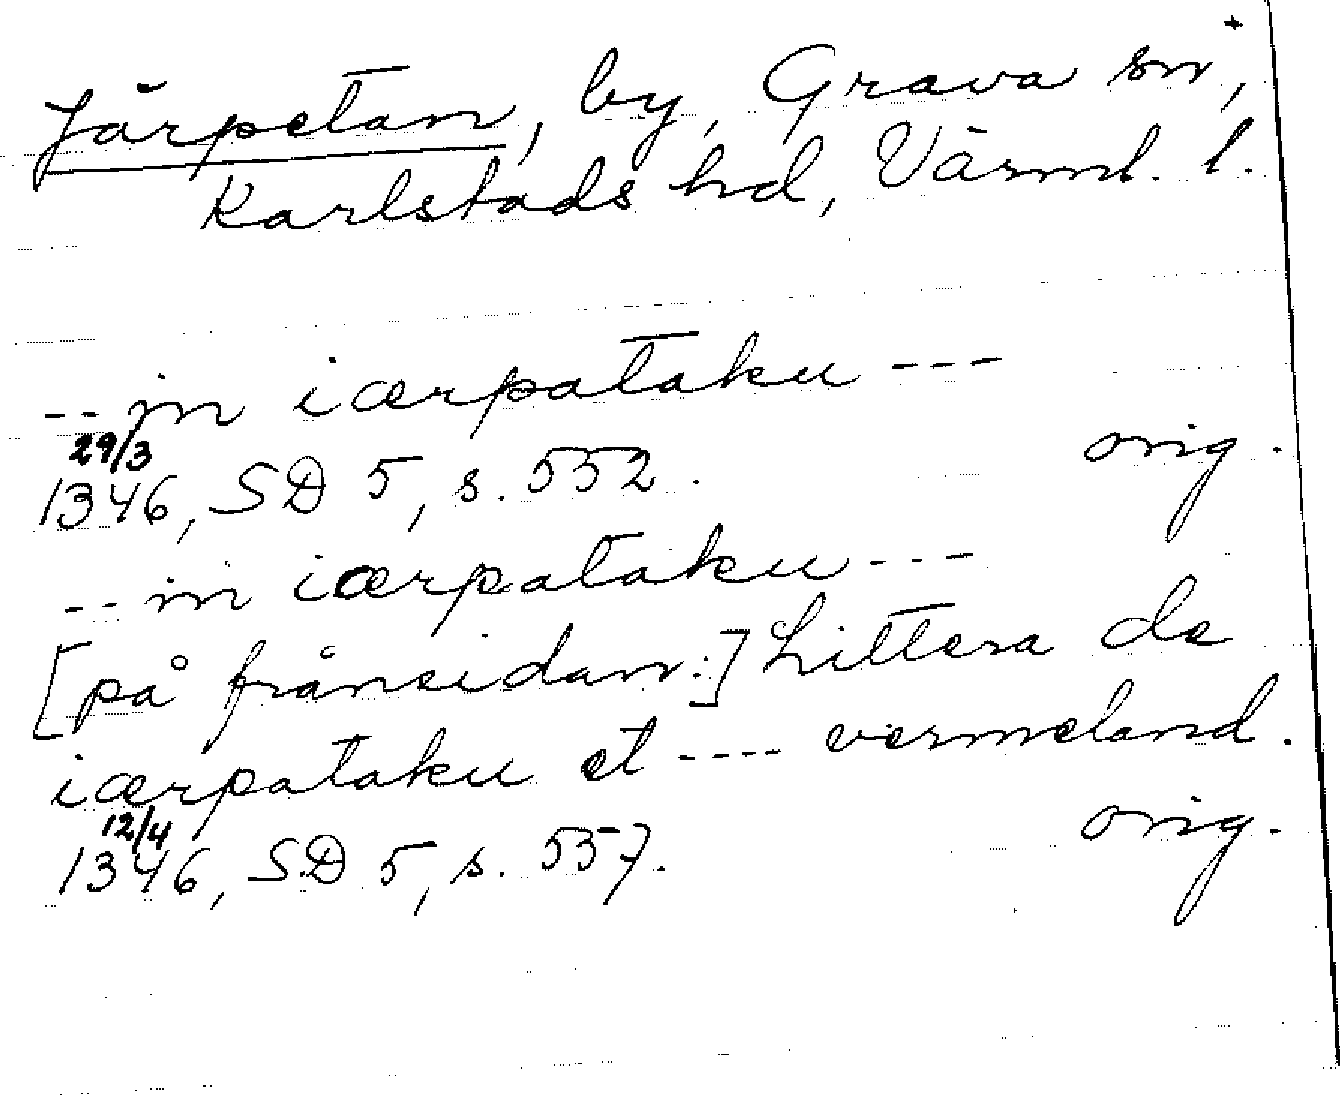 +
Järpetan, by, Grava sn,
Karlstads hd, Värml. l.
-- in iærpataku ---
29/3
1346, SD 5, s. 552. orig.
-- in iærpataku ---
[på frånsidan:] Littera de
iærpataku et ---- vermeland.
12/4
1346, SD 5, s. 557. orig.